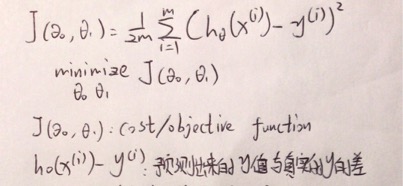 J(θ₀, θ₁) = 1/2m ∑ᵢ₌₁ᵐ (hθ(x⁽ⁱ⁾) − y⁽ⁱ⁾)²
minimize J(θ₀, θ₁)
θ₀ θ₁
J(θ₀, θ₁): cost/objective function
hθ(x⁽ⁱ⁾) − y⁽ⁱ⁾: 预测出来的y值与真实的y的差